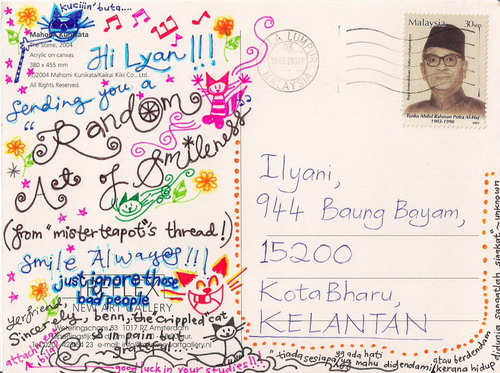 kuciiin' buta....
Mahomi Kunikata
The Scene, 2004
Acrylic on canvas
380 x 455 mm
©2004 Mahomi Kunikata/Kaikai Kiki Co., Ltd.
All Rights Reserved.
Hi Lyan!!!
Sending you a
"Random
Act of Smileness"
(from "misterteapot"s thread!)
Smile Always!!!
just ignore those
bad people
NEW ART GALLERY
1017 RZ Amsterdam
yerfriend,
Sincerely, benn, the crippled cat
is in pain but
grateful...
good luck in your studies!!
A LUMPUR
MALAYSIA
Malaysia
30sen
Tunku Abdul Rahman Putra Al-Haj
1903-1990
Ilyani,
944 Baung Bayam,
15200
Kota Bharu,
KELANTAN
"tiada sesiapa yg ada hati
yg mahu didendami
atau berdendam,
kerana hidup
didunia sangatlah singkat" ~unknown